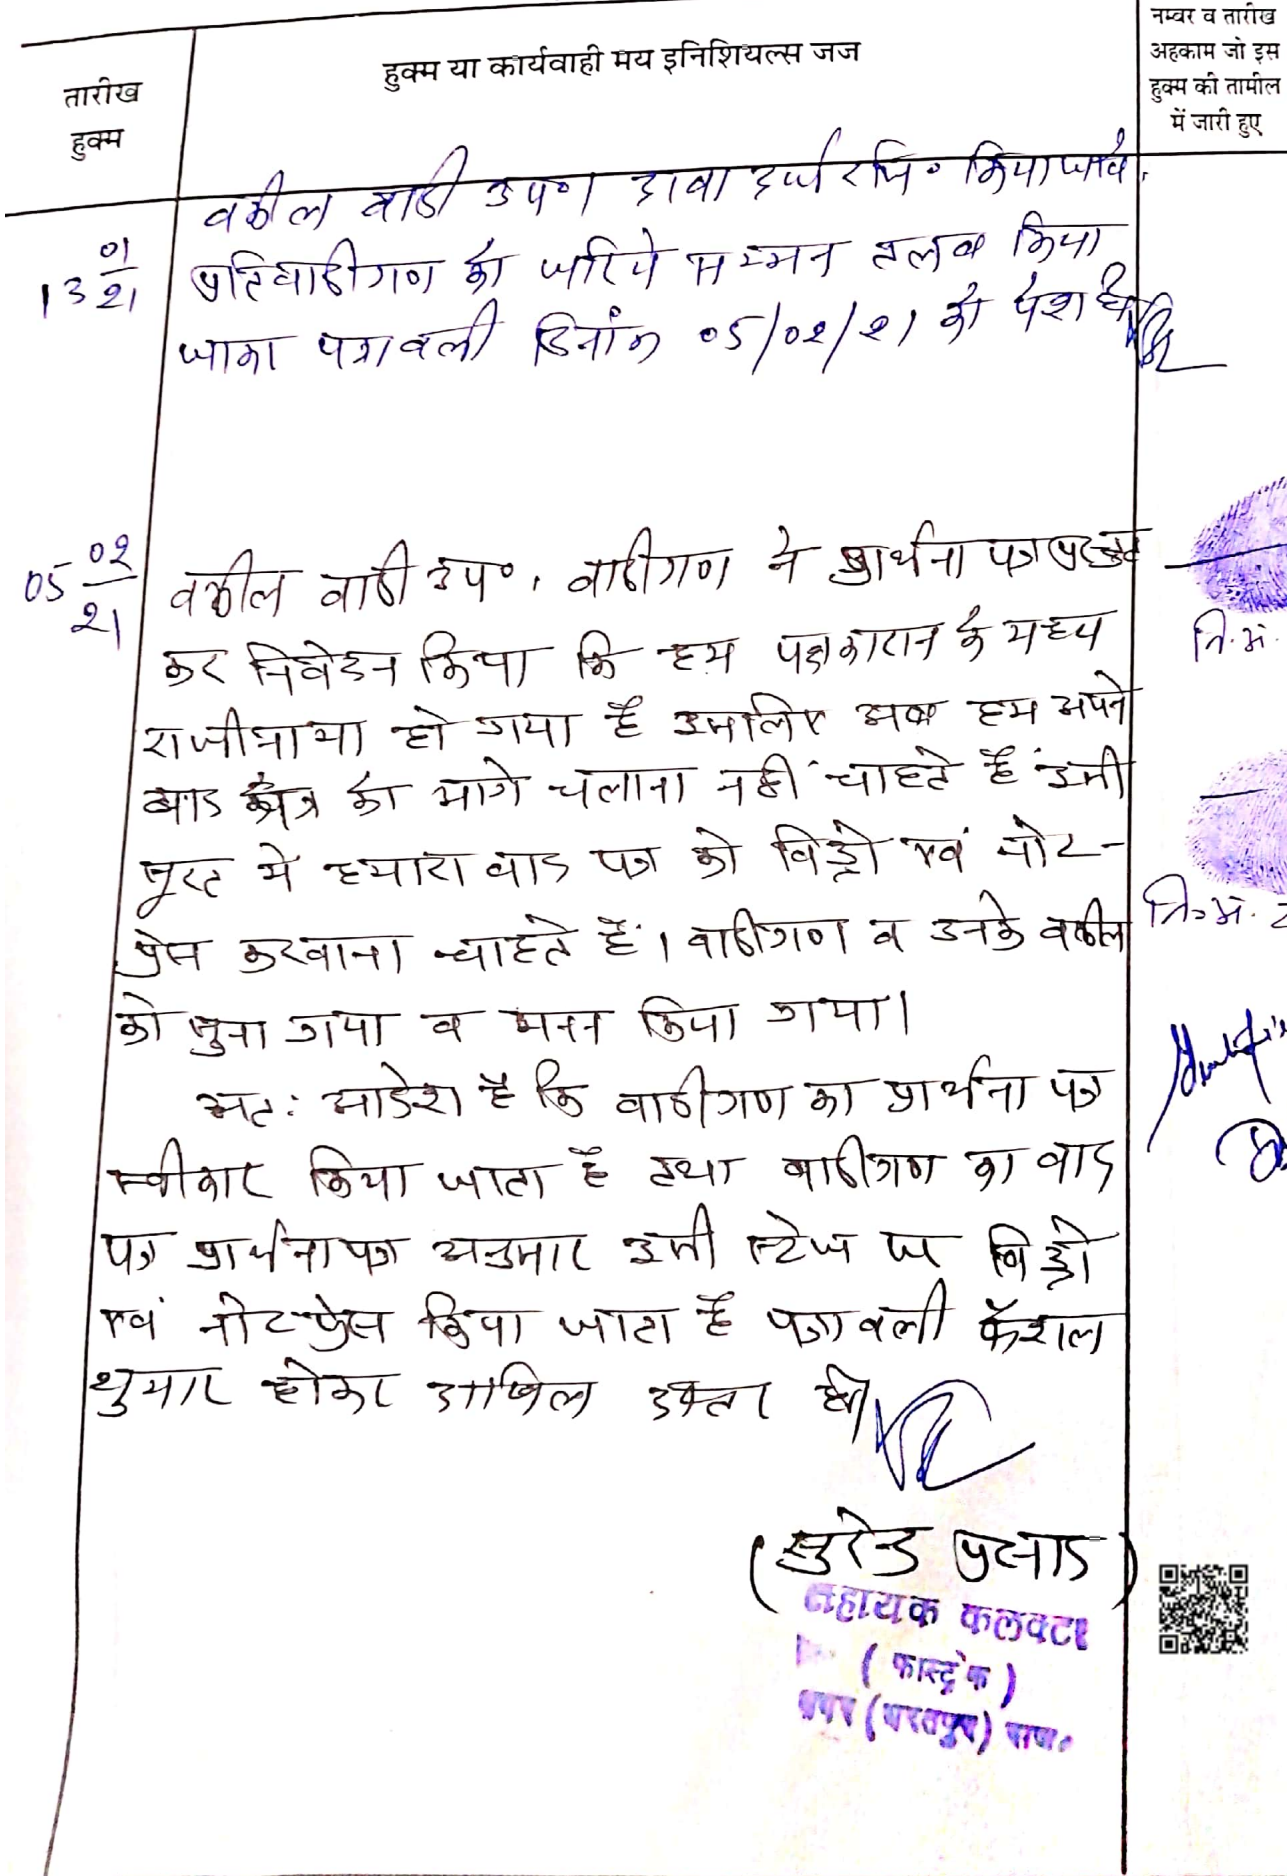 तारीख
हुक्म
हुक्म या कार्यवाही मय इनिशियल्स जज
नम्बर व तारीख
अहकाम जो इस
हुक्म की तामील
में जारी हुए
13 01/21
वकील वादी उप०। दावा दर्ज रजि० किया जावे।
प्रतिवादीगण को जरिये सम्मन तलब किया
जाकर पत्रावली दिनांक 05/02/21 को पेश हो
05 02/21
वकील वादी उप०। वादीगण ने प्रार्थना पत्र प्रस्तुत
कर निवेदन किया कि हम पक्षकारान के मध्य
राजीनामा हो गया है इसलिए अब हम अपने
वाद पत्र को आगे चलाना नहीं चाहते हैं इसी
सूरत में हमारा वाद पत्र को विड्रो एवं नोट-
प्रेस करवाना चाहते हैं। वादीगण व उनके वकील
को सुना गया व मनन किया गया।
अतः आदेश है कि वादीगण का प्रार्थना पत्र
स्वीकार किया जाता है तथा वादीगण का वाद
पत्र प्रार्थना पत्र अनुसार इसी स्टेज पर विड्रो
एवं नोट-प्रेस किया जाता है पत्रावली फैशल
शुमार होकर दाखिल दफ्तर हो
(सुरेन्द्र प्रसाद)
सहायक कलक्टर
(फास्ट्रेक)
(भरतपुर) राज०
नि.अं.
नि.अं.